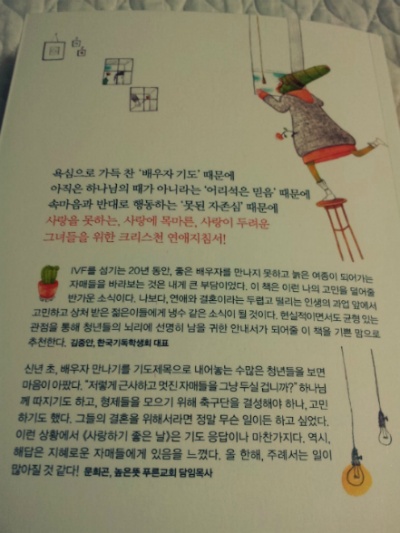 욕심으로 가득 찬 '배우자 기도' 때문에
아직은 하나님의 때가 아니라는 '어리석은 믿음' 때문에
속마음과 반대로 행동하는 '못된 자존심' 때문에
사랑을 못하는, 사랑에 목마른, 사랑이 두려운
그녀들을 위한 크리스천 연애지침서!
IVF를 섬기는 20년 동안, 좋은 배우자를 만나지 못하고 늙은 여종이 되어가는
자매들을 바라보는 것은 내게 큰 부담이었다. 이 책은 이런 나의 고민을 덜어줄
반가운 소식이다. 나보다, 연애와 결혼이라는 두렵고 떨리는 인생의 과업 앞에서
고민하고 상처 받은 젊은이들에게 냉수 같은 소식이 될 것이다. 현실적이면서도 균형 있는
관점을 통해 청년들의 뇌리에 선명히 남을 귀한 안내서가 되어줄 이 책을 기쁜 맘으로
추천한다. 김중안, 한국기독학생회 대표
신년 초, 배우자 만나기를 기도제목으로 내어놓는 수많은 청년들을 보면
마음이 아팠다. "저렇게 근사하고 멋진 자매들을 그냥 두실 겁니까?" 하나님
께 따지기도 하고, 형제들을 모으기 위해 축구단을 결성해야 하나, 고민
하기도 했다. 그들의 결혼을 위해서라면 정말 무슨 일이든 하고 싶었다.
이런 상황에서 《사랑하기 좋은 날》은 기도 응답이나 마찬가지다. 역시,
해답은 지혜로운 자매들에게 있음을 느꼈다. 올 한해, 주례서는 일이
많아질 것 같다! 문희곤, 높은뜻 푸른교회 담임목사